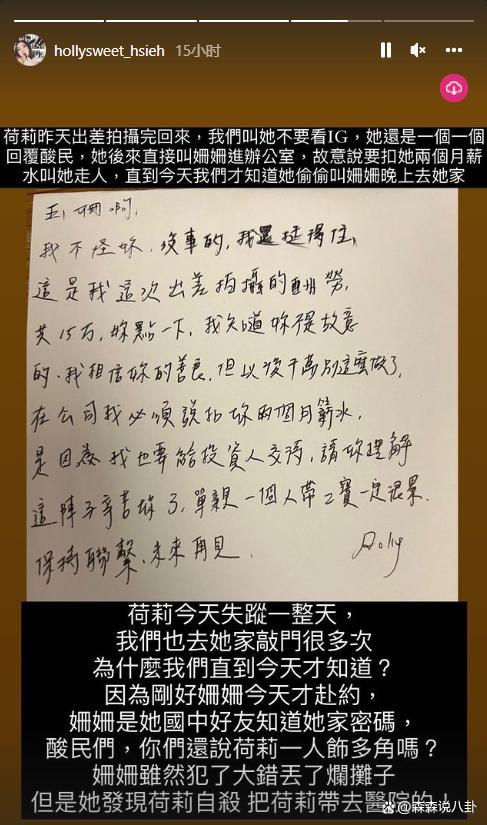 hollysweet_hsieh 15小时
荷莉昨天出差拍攝完回來，我們叫她不要看IG，她還是一個一個
回覆酸民，她後來直接叫姍姍進辦公室，故意說要扣她兩個月薪
水叫她走人，直到今天我們才知道她偷偷叫姍姍晚上去她家
姍啊,
我不怪妳、沒事的,我還挺得住,
這是我這次出差拍攝的酬勞,
共15万,妳點一下,我知道妳不是故意
的、我相信妳的善良,但以後千萬別這麼做了,
在公司我必須說扣妳兩個月薪水,
是因為我也要給投資人交待,請妳理解
這陣子辛苦妳了,單親一個人帶2寶一定很累.
保持聯繫、未來再見.
Holly
荷莉今天失蹤一整天，
我們也去她家敲門很多次
為什麼我們直到今天才知道？
因為剛好姍姍今天才赴約，
姍姍是她國中好友知道她家密碼，
酸民們，你們還說荷莉一人飾多角嗎？
姍姍雖然犯了大錯丟了爛攤子
但是她發現荷莉自殺 把荷莉帶去醫院的！
森森说八卦